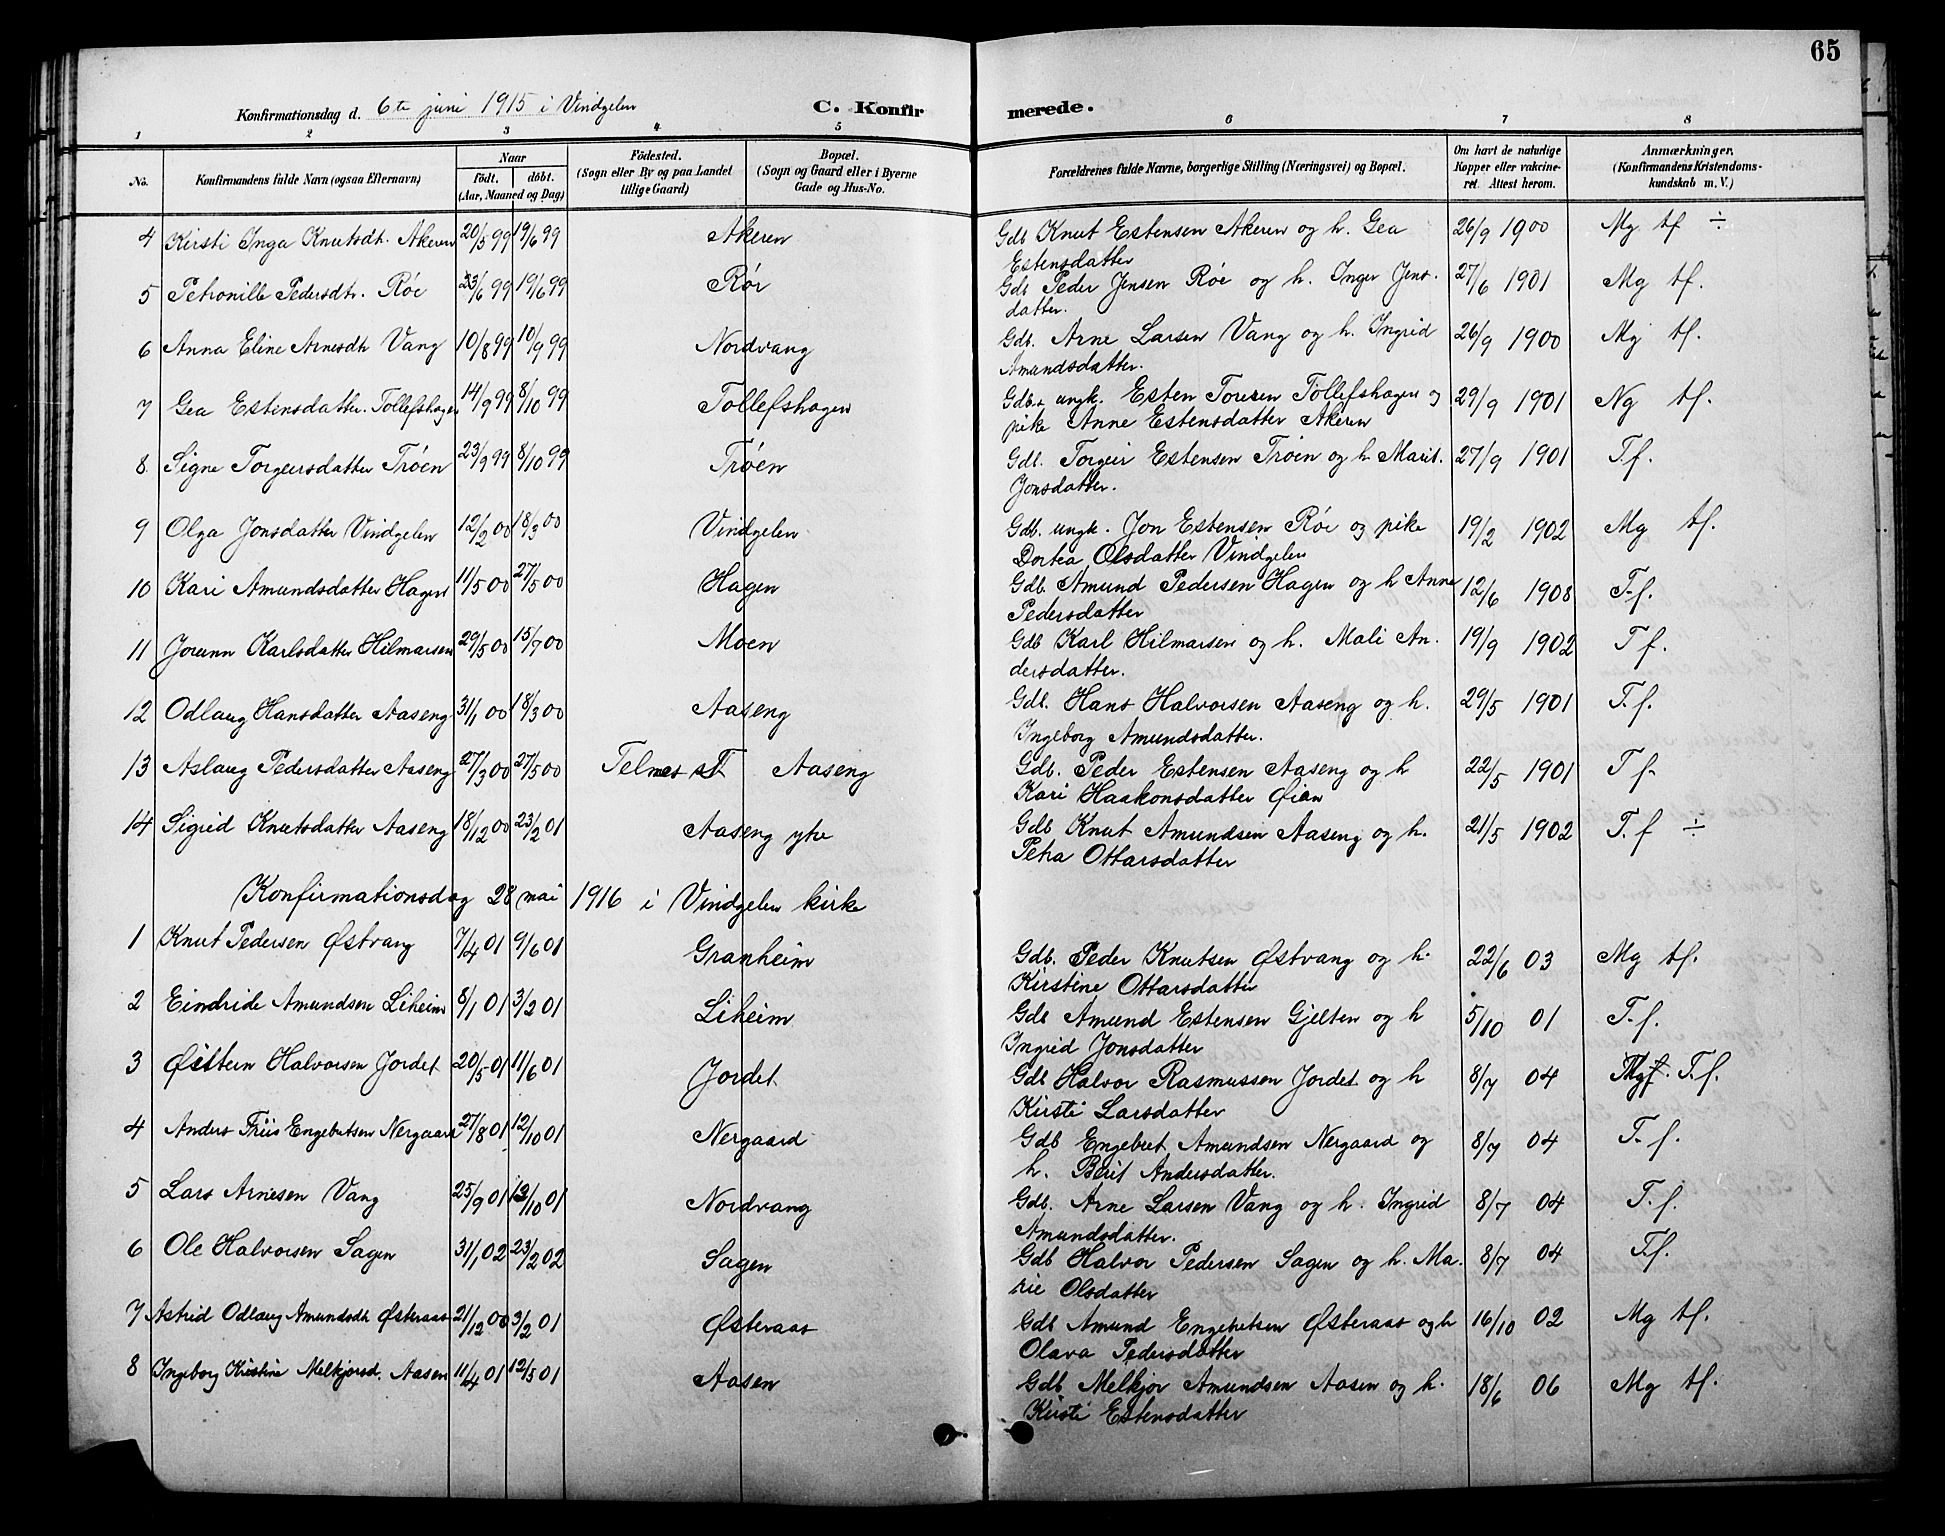 65
Konfirmationsdag d. 6te juni 1915 i Vindgelen C. Konfir merede.
1 2 3 4 5 6 7 8
No. Konfirmandens fulde Navn (ogsaa Efternavn) Naar födt. döbt. (Aar, Maaned og Dag) Födested. (Sogn eller By og paa Landet tillige Gaard) Bopæl. (Sogn og Gaard eller i Byerne Gade og Hus-No. Forældrenes fulde Navne, borgerlige Stilling (Næringsvei) og Bopæl. Om havt de naturlige Kopper eller vakcineret. Attest herom. Anmærkninger. (Konfirmandens Kristendomskundskab m. V.)
4 Kirsti Inga Knutsdt. Akeren 20/5 99 19/6 99 Akeren Gdb Knut Estensen Akeren og h. Gea 26/9 1900 Mg tf ÷
Estensdatter
5 Petronille Pedersdtr. Røe 23/6 99 19/6 99 Røe Gdb Peder Jensen Røe og h. Inger Jens- 27/6 1901 Mg tf.
datter.
6 Anna Eline Arnesdtr Vang 10/8 99 10/9 99 Nordvang Gdb. Arne Larsen Vang og h. Ingrid 26/9 1900 Mg tf.
Amundsdatter.
7 Gea Estensdatter. Tollefshagen 14/9 99 8/10 99 Tollefshagen Gdb. ungk. Esten Toresen Tollefshagen og 29/9 1901 Ng tf.
pike Anne Estensdatter Akeren
8 Signe Torgeirsdatter Trøen 23/9 99 8/10 99 Trøen Gdb. Torgeir Estensen Trøen og h Marit 27/9 1901 T.f.
Jonsdatter.
9 Olga Jonsdatter Vindgelen 12/2 00 18/3 00 Vindgelen Gdb. ungk. Jon Estensen Røe og pike 19/2 1902 Mg tf.
Dortea Olsdatter Vindgelen
10 Kari Amundsdatter Hagen 11/5 00 27/5 00 Hagen Gdb. Amund Pedersen Hagen og h Anne 12/6 1908 T.f.
Pedersdatter
11 Jorunn Karlsdatter Hilmarsen 29/5 00 15/7 00 Moen Gdb Karl Hilmarsen og h. Mali An- 19/9 1902 T f.
dersdatter.
12 Odlaug Hansdatter Aaseng 31/1 00 18/3 00 Aaseng Gdb. Hans Halvorsen Aaseng og h. 29/5 1901 T.f.
Ingeborg Amundsdatter.
13 Aslaug Pedersdatter Aaseng 27/3 00 27/5 00 Telnes st Aaseng Gdb. Peder Estensen Aaseng og h 22/5 1901 T f.
Kari Haakonsdatter Øien
14 Sigrid Knutsdatter Aaseng 18/12 00 23/2 01 Aaseng ytre Gdb Knut Amundsen Aaseng og h. 21/5 1902 T.f ÷
Petra Ottarsdatter
Konfirmationsdag 28 mai 1916 i Vindgelen kirke
1 Knut Pedersen Østvang 7/4 01 9/6 01 Granheim Gdb. Peder Knutsen Østvang og h. 22/6 03 Mg tf.
Kirstine Ottarsdatter
2 Eindride Amundsen Liheim 8/1 01 3/2 01 Liheim Gdb Amund Estensen Gjelten og h 5/10 01 T.f.
Ingrid Jonsdatter
3 Øistein Halvorsen Jordet 20/5 01 11/6 01 Jordet Gdb Halvor Rasmussen Jordet og h 8/7 04 T.f.
Kirsti Larsdatter
4 Anders Friis Engebretsen Nergaard 27/8 01 12/10 01 Nergaard Gdb Engebret Amundsen Nergaard og 8/7 04 T.f.
h. Berit Andersdatter.
5 Lars Arnesen Vang 25/9 01 13/10 01 Nordvang Gdb. Arne Larsen Vang og h. Ingrid 8/7 04 T.f.
Amundsdatter.
6 Ole Halvorsen Sagen 31/1 02 23/2 02 Sagen Gdb Halvor Pedersen Sagen og h. Ma- 8/7 04 T.f.
rie Olsdatter
7 Astrid Odlaug Amundsdt Østeraas 21/12 00 3/2 01 Østeraas Gdb Amund Engebretsen Østeraas og h 16/10 02 Mg tf.
Olava Pedersdatter
8 Ingeborg Kristine Melkjorsd. Aasen 11/4 01 12/5 01 Aasen Gdb Melkjor Amundsen Aasen og h. 18/6 06 Mg tf.
Kirsti Estensdatter